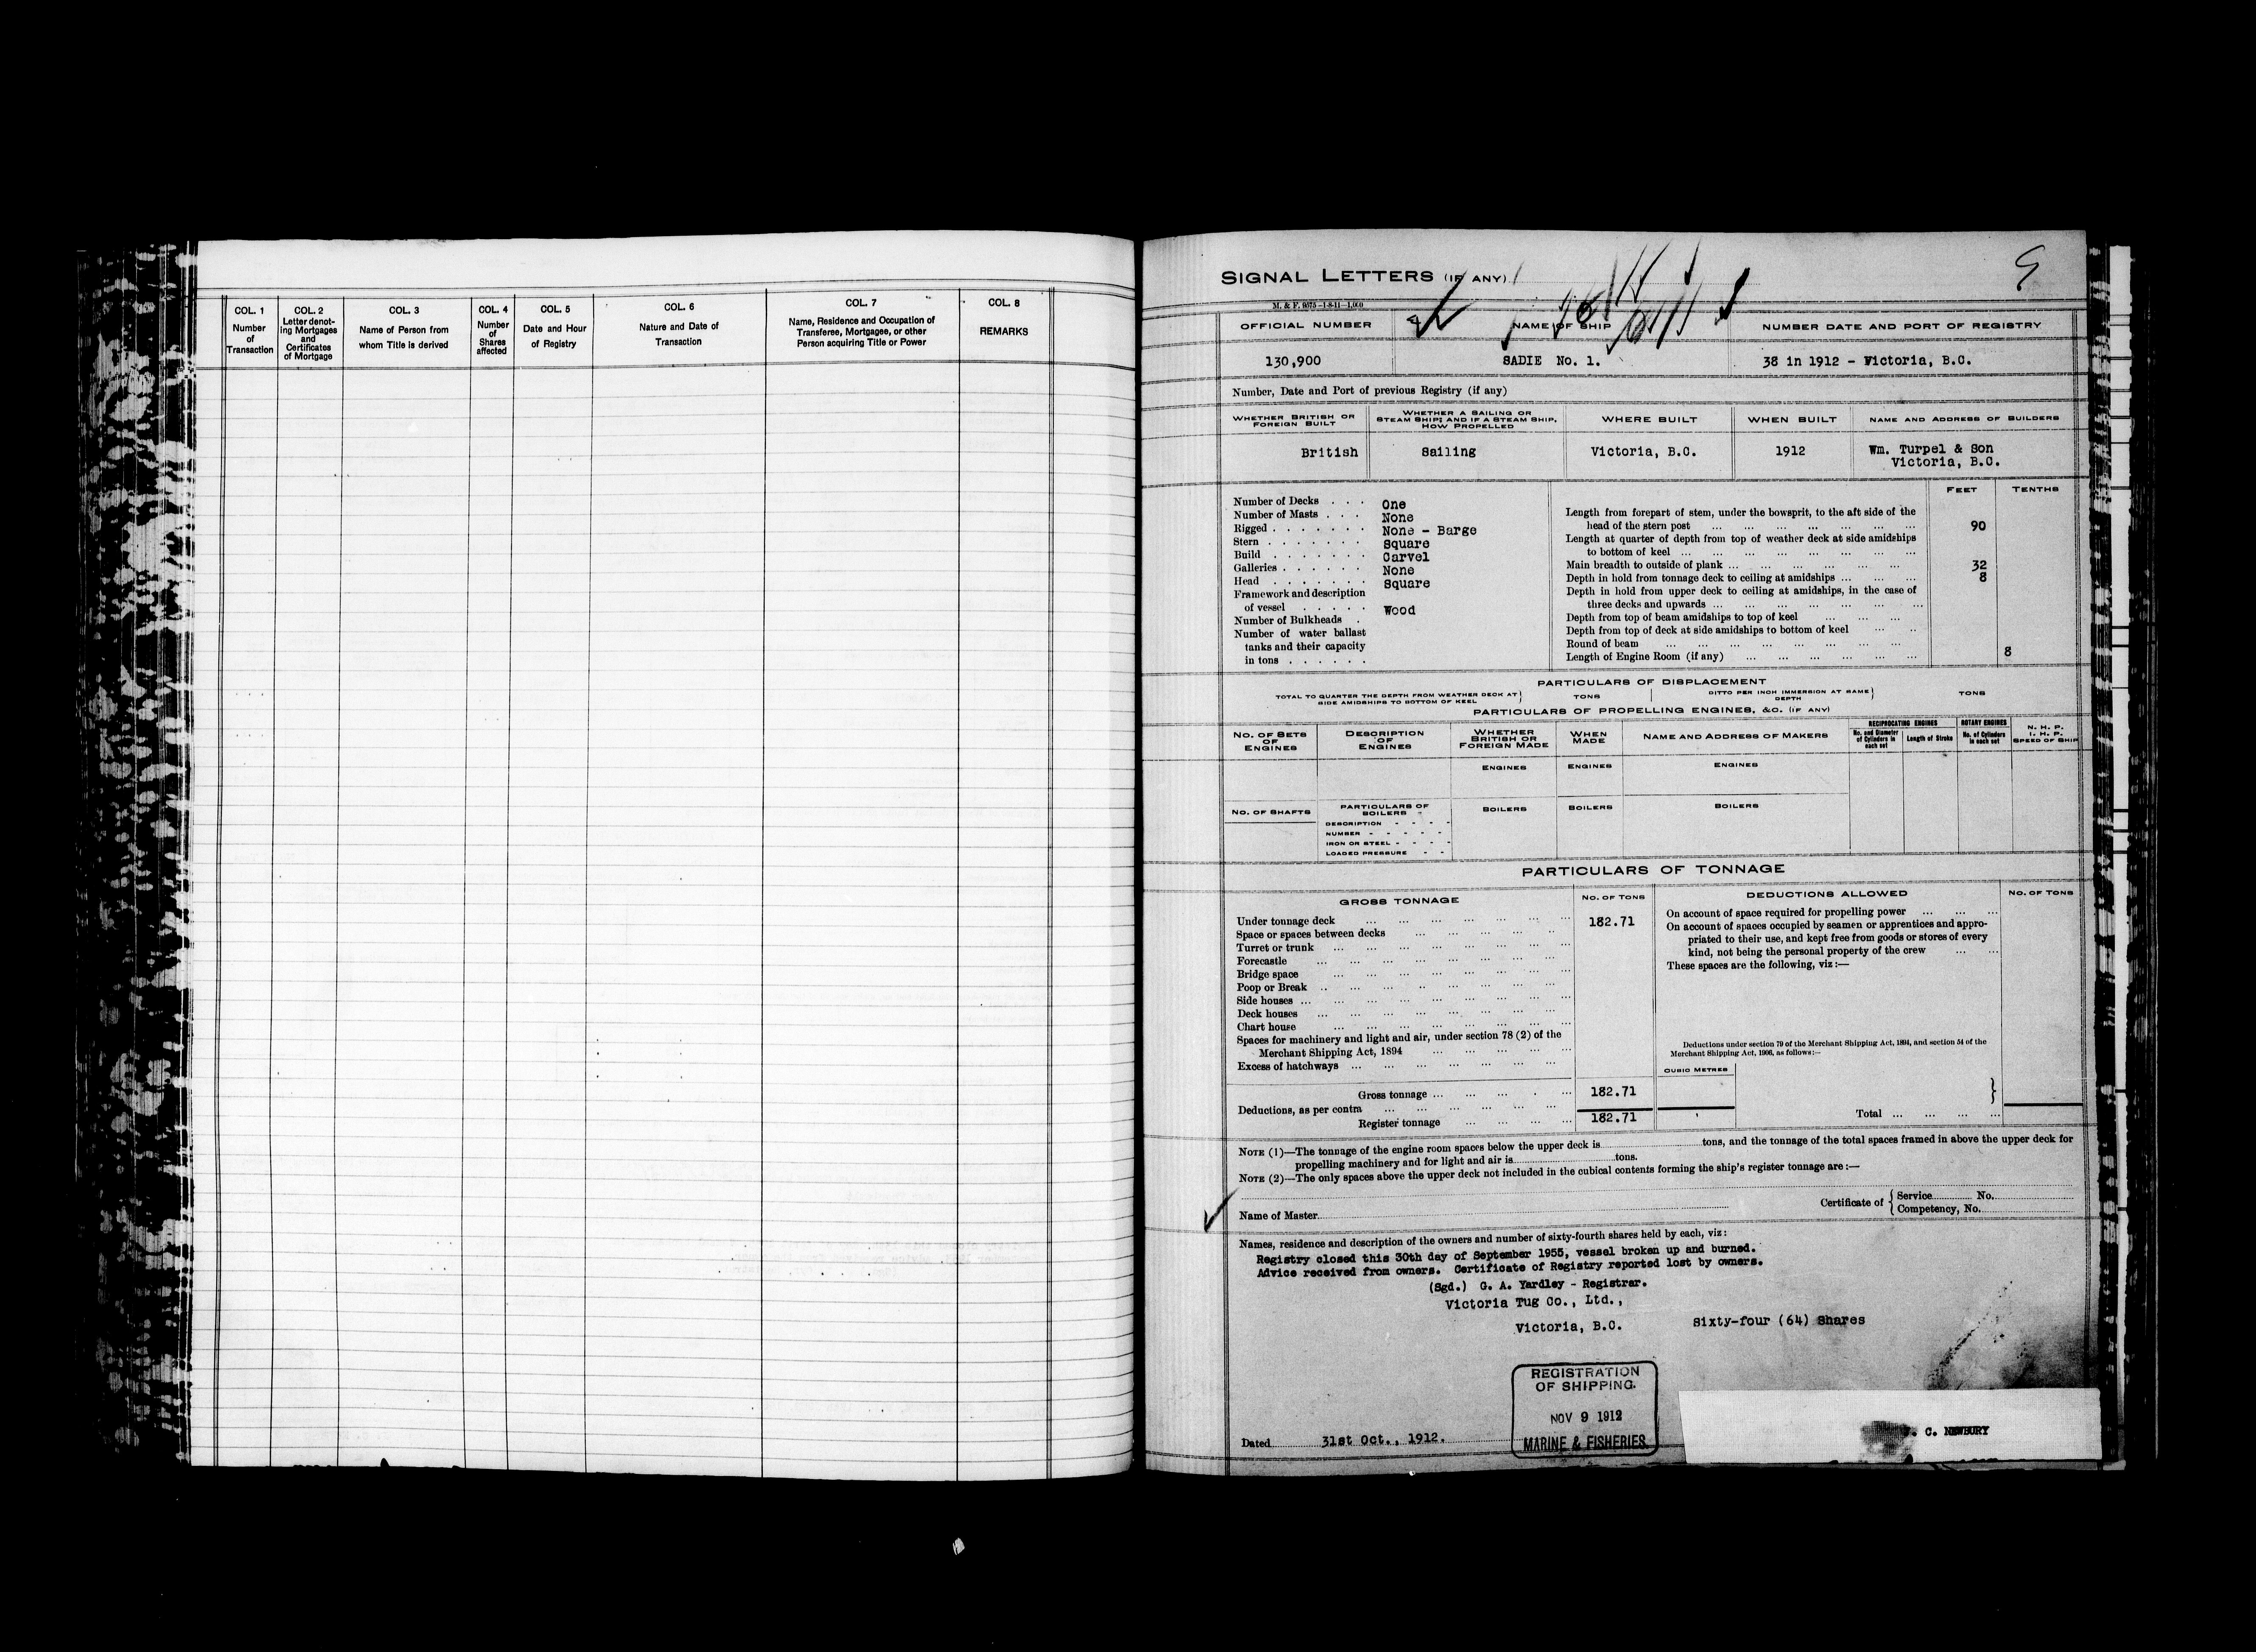 COL. 1
Number
of
Transaction
COL. 2
Letter denot-
ing Mortgages
and
Certificates
of Mortgage
COL. 3
Name of Person from
whom Title is derived
COL. 4
Number
of
Shares
affected
COL. 5
Date and Hour
of Registry
COL. 6
Nature and Date of
Transaction
COL. 7
Name, Residence and Occupation of
Transferee, Mortgagee, or other
Person acquiring Title or Power
COL. 8
REMARKS
SIGNAL LETTERS (IF ANY)
M. & F. 9575-1-8-11-1,000
OFFICIAL NUMBER NAME OF SHIP NUMBER DATE AND PORT OF REGISTRY
130,900 SADIE No. 1. 38 in 1912 - Victoria, B.C.
Number, Date and Port of previous Registry (if any)
WHETHER BRITISH OR
FOREIGN BUILT
WHETHER A SAILING OR
STEAM SHIP; AND IF A STEAM SHIP,
HOW PROPELLED
WHERE BUILT
WHEN BUILT
NAME AND ADDRESS OF BUILDERS
British Sailing Victoria, B.C. 1912 Wm. Turpel & Son
Victoria, B.C.
Number of Decks . . . One
Number of Masts . . . None
Rigged . . . . . . . None - Barge
Stern . . . . . . . Square
Build . . . . . . . Carvel
Galleries . . . . . . None
Head . . . . . . . Square
Framework and description
of vessel . . . . . Wood
Number of Bulkheads .
Number of water ballast
tanks and their capacity
in tons . . . . . .
FEET TENTHS
Length from forepart of stem, under the bowsprit, to the aft side of the
head of the stern post 90
Length at quarter of depth from top of weather deck at side amidships
to bottom of keel
Main breadth to outside of plank 32
Depth in hold from tonnage deck to ceiling at amidships 8
Depth in hold from upper deck to ceiling at amidships, in the case of
three decks and upwards
Depth from top of beam amidships to top of keel
Depth from top of deck at side amidships to bottom of keel
Round of beam
Length of Engine Room (if any) 8
PARTICULARS OF DISPLACEMENT
TOTAL TO QUARTER THE DEPTH FROM WEATHER DECK AT
SIDE AMIDSHIPS TO BOTTOM OF KEEL
TONS
DITTO PER INCH IMMERSION AT SAME
DEPTH
TONS
PARTICULARS OF PROPELLING ENGINES, &C. (IF ANY)
NO. OF SETS
OF
ENGINES
DESCRIPTION
OF
ENGINES
WHETHER
BRITISH OR
FOREIGN MADE
WHEN
MADE
NAME AND ADDRESS OF MAKERS
RECIPROCATING ENGINES
No. and Diameter
of Cylinders in
each set
Length of Stroke
ROTARY ENGINES
No. of Cylinders
in each set
N. H. P.
I. H. P.
SPEED OF SHIP
ENGINES ENGINES ENGINES
NO. OF SHAFTS
PARTICULARS OF
BOILERS
BOILERS BOILERS BOILERS
DESCRIPTION - - - -
NUMBER - - - - -
IRON OR STEEL - - - -
LOADED PRESSURE - -
PARTICULARS OF TONNAGE
GROSS TONNAGE NO. OF TONS
Under tonnage deck 182.71
Space or spaces between decks
Turret or trunk
Forecastle
Bridge space
Poop or Break
Side houses
Deck houses
Chart house
Spaces for machinery and light and air, under section 78 (2) of the
Merchant Shipping Act, 1894
Excess of hatchways
Gross tonnage 182.71
Deductions, as per contra
Register tonnage 182.71
DEDUCTIONS ALLOWED NO. OF TONS
On account of space required for propelling power
On account of spaces occupied by seamen or apprentices and appro-
priated to their use, and kept free from goods or stores of every
kind, not being the personal property of the crew
These spaces are the following, viz:—
Deductions under section 79 of the Merchant Shipping Act, 1894, and section 54 of the
Merchant Shipping Act, 1906, as follows:—
CUBIC METRES
Total
NOTE (1)—The tonnage of the engine room spaces below the upper deck is tons, and the tonnage of the total spaces framed in above the upper deck for
propelling machinery and for light and air is tons.
NOTE (2)—The only spaces above the upper deck not included in the cubical contents forming the ship's register tonnage are:—
Name of Master
Certificate of { Service No.
Competency, No.
Names, residence and description of the owners and number of sixty-fourth shares held by each, viz:
Registry closed this 30th day of September 1955, vessel broken up and burned.
Advice received from owners. Certificate of Registry reported lost by owners.
(Sgd.) G. A. Yardley - Registrar.
Victoria Tug Co., Ltd.,
Victoria, B.C. Sixty-four (64) Shares
REGISTRATION
OF SHIPPING.
NOV 9 1912
MARINE & FISHERIES.
Dated 31st Oct., 1912.
C. NEWBURY